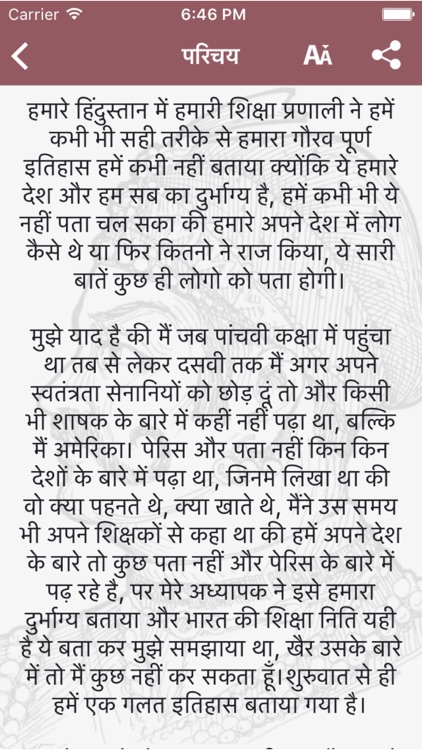 Carrier 6:46 PM
परिचय AA
हमारे हिंदुस्तान में हमारी शिक्षा प्रणाली ने हमें
कभी भी सही तरीके से हमारा गौरव पूर्ण
इतिहास हमें कभी नहीं बताया क्योंकि ये हमारे
देश और हम सब का दुर्भाग्य है, हमें कभी भी ये
नहीं पता चल सका की हमारे अपने देश में लोग
कैसे थे या फिर कितनो ने राज किया, ये सारी
बातें कुछ ही लोगो को पता होगी।
मुझे याद है की मैं जब पांचवी कक्षा में पहुंचा
था तब से लेकर दसवी तक मैं अगर अपने
स्वतंत्रता सेनानियों को छोड़ दूं तो और किसी
भी शाषक के बारे में कहीं नहीं पढ़ा था, बल्कि
मैं अमेरिका। पेरिस और पता नहीं किन किन
देशों के बारे में पढ़ा था, जिनमे लिखा था की
वो क्या पहनते थे, क्या खाते थे, मैंने उस समय
भी अपने शिक्षकों से कहा था की हमें अपने देश
के बारे तो कुछ पता नहीं और पेरिस के बारे में
पढ़ रहे है, पर मेरे अध्यापक ने इसे हमारा
दुर्भाग्य बताया और भारत की शिक्षा निति यही
है ये बता कर मुझे समझाया था, खैर उसके बारे
में तो मैं कुछ नहीं कर सकता हूँ।शुरुवात से ही
हमें एक गलत इतिहास बताया गया है।